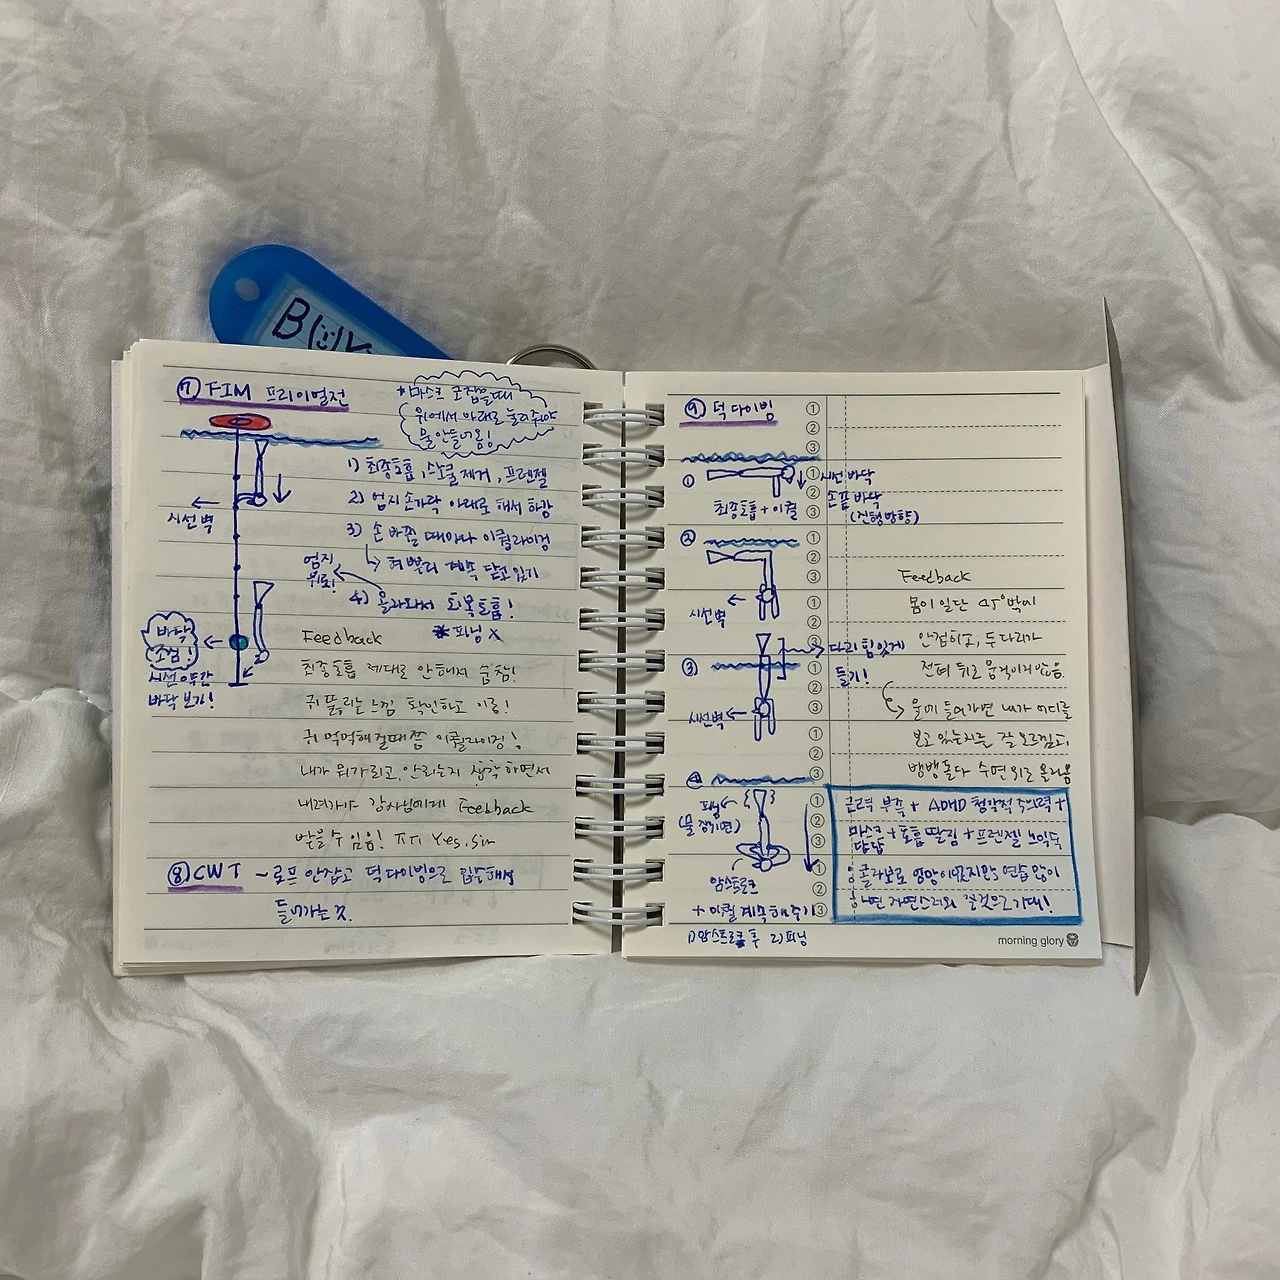 ⑦ FIM 프리이멀전
*마스크 코잡을때
위에서 아래로 눌러줘야
물 안들어옴!
1) 최종호흡, 스노클 제거, 프렌젤
2) 엄지손가락 아래로 해서 하강
시선 벽
3) 손 바꿀 때마다 이퀄라이징
↳ 혀뿌리 계속 닫고 있기
엄지
위로!
4) 올라와서 회복호흡!
* 피닝 X
바닥
조심!
시선 0
바닥 보기!
Feedback
최종호흡 제대로 안해서 숨참!
귀 뚫리는 느낌 확인하고 이동!
귀 먹먹해질때쯤 이퀄라이징!
내가 뭐가 되고, 안되는지 생각하면서
내려가야 강사님에게 Feedback
받을수 있음! ㅠㅠ Yes, Sir
⑧ CWT ~ 로프 안잡고 덕다이빙으로 입수해서
들어가는 것.
⑨ 덕 다이빙
①
시선 바닥
손끝 바닥
(진행방향)
최종호흡 + 이퀄
②
시선벽
③
다리 힘있게
들기!
시선벽
④
피닝
암스트로크
+ 이퀄 계속 해주기
1) 암스트로크 후 2) 피닝
Feedback
몸이 일단 45° 밖에
안접히고, 두 다리가
전혀 뒤로 움직이지 않음.
↳ 물에 들어가면 내가 어디를
보고 있는지를 잘 모르겠고,
뱅뱅돌다 수면 위로 올라옴
근력 부족 + ADHD 청각적 주의력 +
마스크 답답 + 호흡 딸림 + 프렌젤 노익숙
응콜라보로 엉망이었지만, 연습 많이
하면 자연스러워 질것으로 기대!
morning glory
BUY